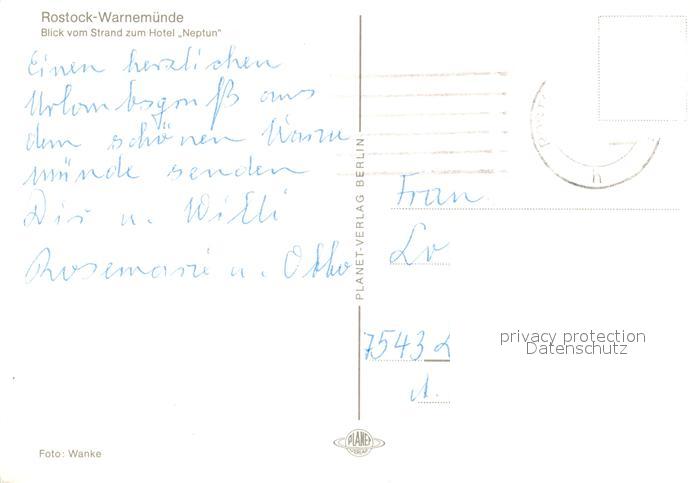 Rostock-Warnemünde
Blick vom Strand zum Hotel „Neptun"
Einen herzlichen
Urlaubsgruß aus
dem schönen Warne
münde senden
Dir u. Willi
Rosemarie u. Otto
PLANET-VERLAG BERLIN
Frau
7543
privacy protection
Datenschutz
PLANET
VERLAG
Foto: Wanke